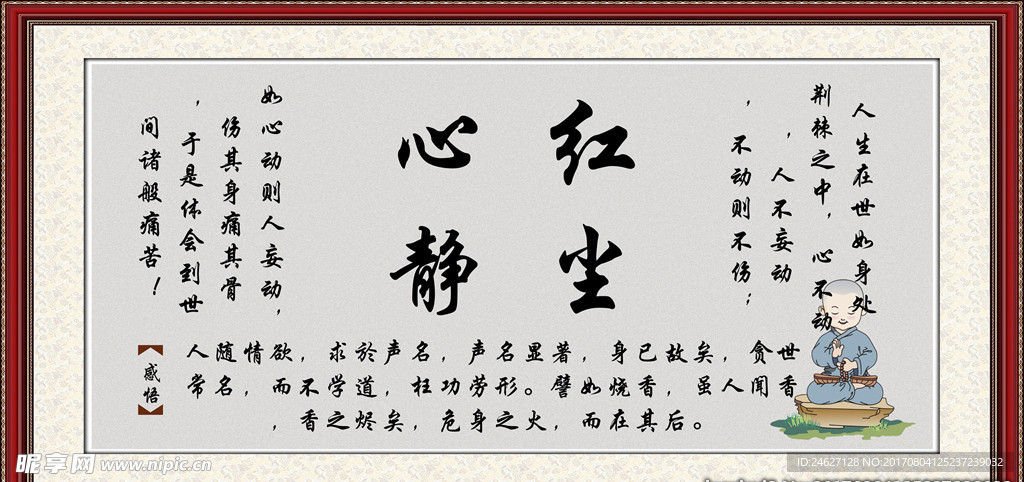 人生在世如身处
荆棘之中，心不动
，人不妄动
，不动则不伤；
红尘
心静
如心动则人妄动，
伤其身痛其骨
，于是体会到世
间诸般痛苦！
【感悟】
人随情欲，求於声名，声名显著，身已故矣，贪世
常名，而不学道，枉功劳形。譬如烧香，虽人闻香
，香之烬矣，危身之火，而在其后。
昵享网 www.nipic.cn
ID:24627128 NO:20170804125237239032